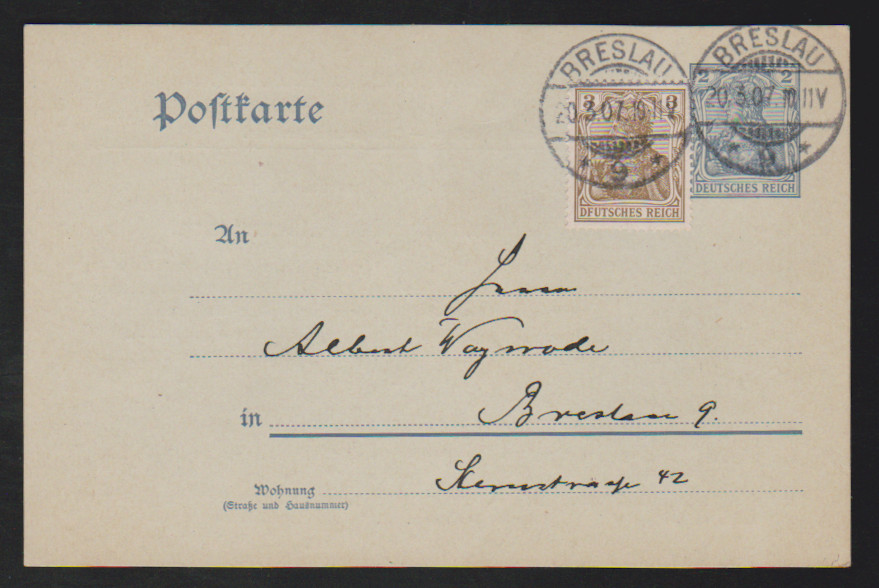 BRESLAU
20.3.07.10-11V
* 9 *
BRESLAU
20.3.07.10-11V
* 9 *
3 3
DFUTSCHES REICH
2 2
DEUTSCHES REICH
Poſtkarte
An
Herrn
Albert Waywode
in Breslau 9.
Wohnung Sternstraße 42
(Straße und Hausnummer)